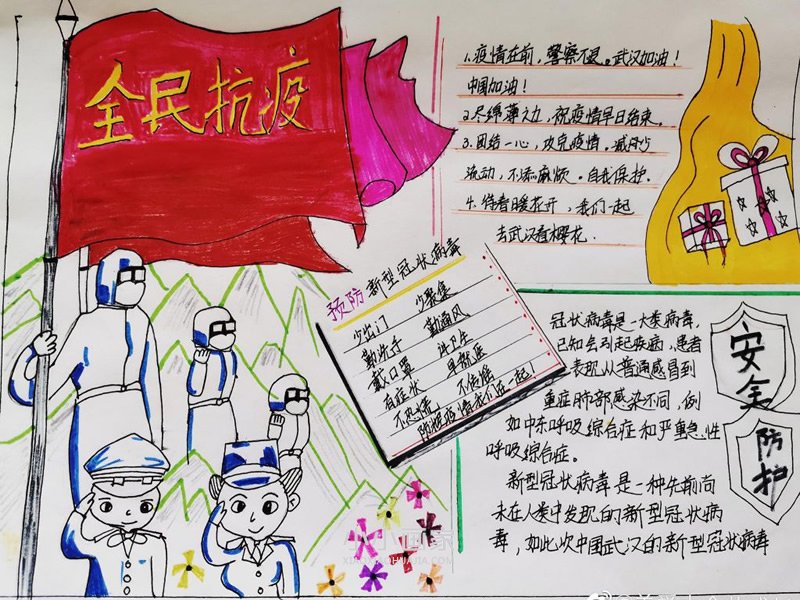 全民抗疫
1.疫情在前，警察不退。武汉加油！
中国加油！
2.尽绵薄之力，祝疫情早日结束。
3.团结一心，攻克疫情。减少
流动，不添麻烦。自我保护.
4.待春暖花开，我们一起
去武汉看樱花.
预防新型冠状病毒
少出门 少聚集
勤洗手 勤通风
戴口罩 讲卫生
有症状 早就医
不恐慌 不传谣
防控疫情我们在一起！
冠状病毒是一大类病毒，
已知会引起疾病，患者
表现从普通感冒到
重症肺部感染不同，例
如中东呼吸综合症和严重急性
呼吸综合症。
新型冠状病毒是一种先前尚
未在人类中发现的新型冠状病
毒，如此次中国武汉的新型冠状病毒
安全
防护